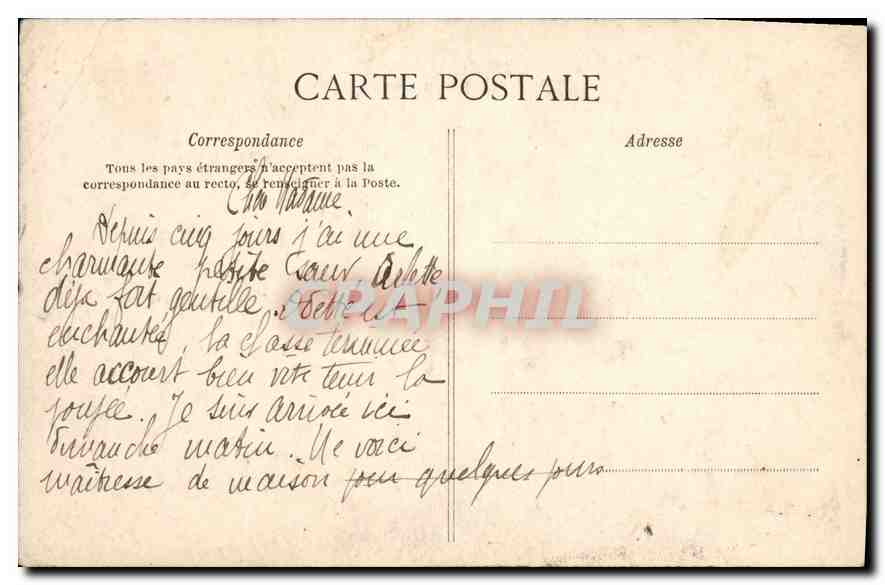 CARTE POSTALE
Correspondance
Adresse
Tous les pays étrangers n'acceptent pas la
correspondance au recto, se renseigner à la Poste.
Chère Madame
Depuis cinq jours j'ai une
charmante petite sœur Arlette
déjà fort gentille. Odette est
enchantée, la classe terminée
elle accourt bien vite tenir la
poupée. Je suis arrivée ici
dimanche matin. Me voici
maîtresse de maison pour quelques jours
CPAPHIL